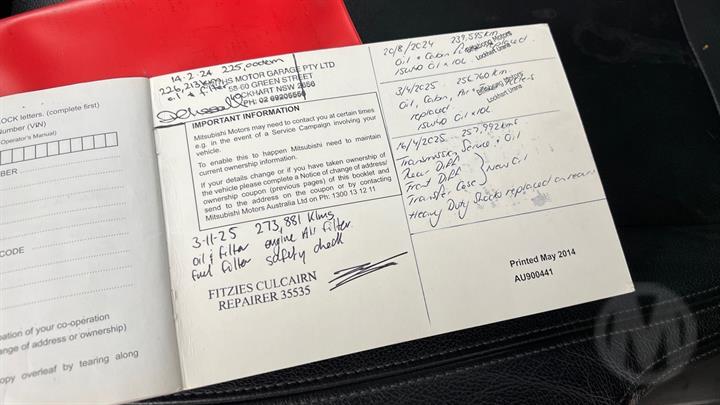 LOCK letters. (complete first)
Number (VIN)
Operator's Manual)
BER
CODE
ation of your co-operation
nge of address or ownership)
opy overleaf by tearing along
14.2.24 225,000km
226,213km
oil & filter
US MOTOR GARAGE PTY LTD
58-60 GREEN STREET
LOCKHART NSW 2656
PH: 02 69205556
IMPORTANT INFORMATION
Mitsubishi Motors may need to contact you at certain times
e.g. in the event of a Service Campaign involving your
vehicle.
To enable this to happen Mitsubishi need to maintain
current ownership information.
If your details change or if you have taken ownership of
the vehicle please complete a Notice of change of address/
ownership coupon (previous pages) of this booklet and
send to the address on the coupon or by contacting
Mitsubishi Motors Australia Ltd on Ph: 1300 13 12 11
3-11-25 273,881 Klms
oil & filter engine Air filter
fuel filter safety check
FITZIES CULCAIRN
REPAIRER 35535
20/8/2024 239,595 km
Oil + Cabin replaced
15W40 Oil x 10L
Motors
Lockhart
3/4/2025 256,760 km
Oil, Cabin, Air + Filters
replaced
15W40 Oil x 10L
Motors
Lockhart
16/4/2025 257,992 kms
Transmission Service + Oil
Rear Diff
Front Diff } New Oil
Transfer Case
Heavy Duty Shocks replaced on rear
Printed May 2014
AU900441
M